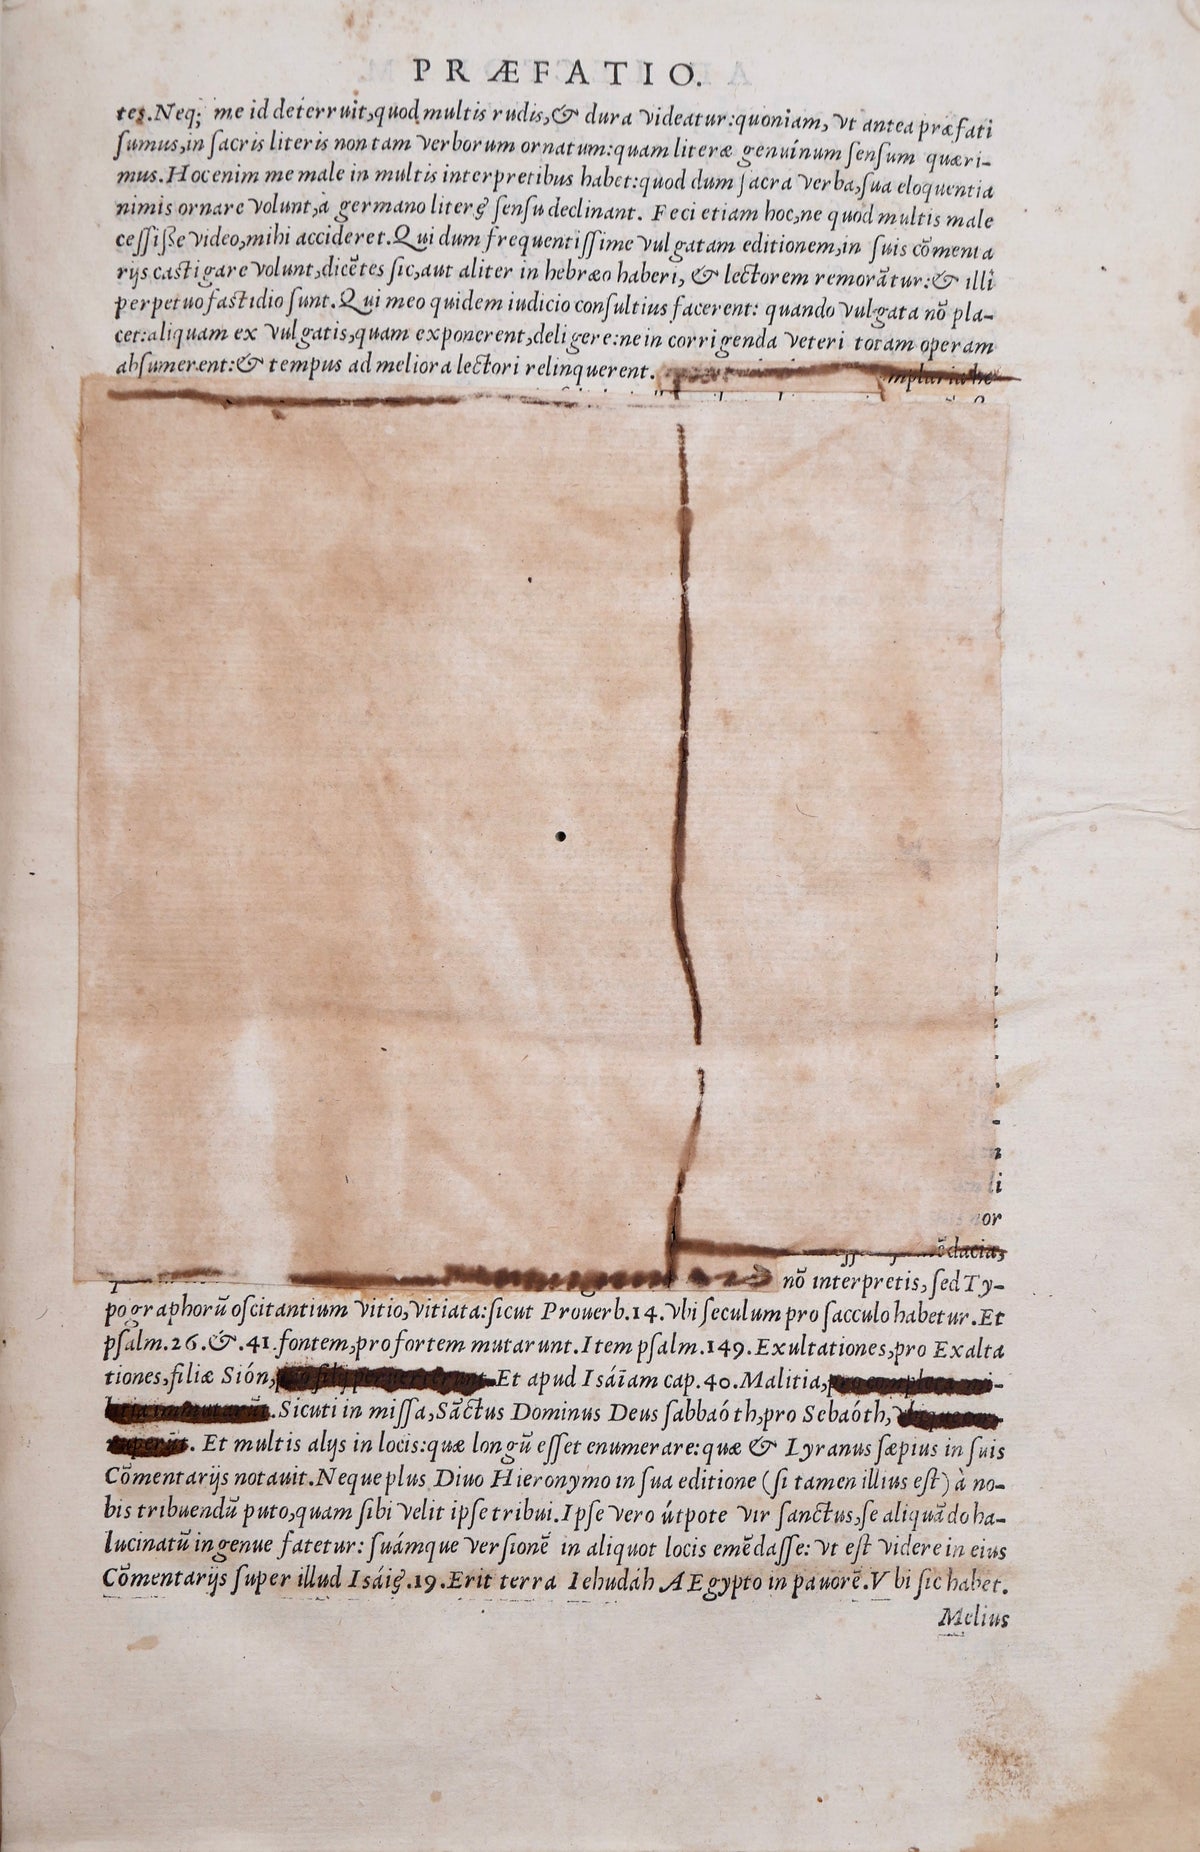 PRÆFATIO.
tes. Neq; me id deterruit, quod multis rudis, & dura videatur: quoniam, vt antea præfati
sumus, in sacris literis non tam verborum ornatum: quam literæ genuínum sensum quæri-
mus. Hoc enim me male in multis interpretibus habet: quod dum sacra verba, sua eloquentia
nimis ornare volunt, à germano literę sensu declinant. Feci etiam hoc, ne quod multis male
cessisse video, mihi accideret. Qui dum frequentissime vulgatam editionem, in suis cõmenta
rijs castigare volunt, dicẽtes sic, aut aliter in hebræo haberi, & lectorem remorãtur: & illi
perpetuo fastidio sunt. Qui meo quidem iudicio consultius facerent: quando vulgata nõ pla-
cet: aliquam ex vulgatis, quam exponerent, deligere: ne in corrigenda veteri totam operam
absumerent: & tempus ad meliora lectori relinquerent.
li
or
ẽdacia,
nõ interpretis, sed Ty-
pographorũ oscitantium vitio, vitiata: sicut Prouerb. 14. vbi seculum pro sacculo habetur. Et
psalm. 26. &. 41. fontem, pro fortem mutarunt. Item psalm. 149. Exultationes, pro Exalta
tiones, filiæ Sión, Et apud Isáiam cap. 40. Malitia,
. Sicuti in missa, Sãctus Dominus Deus sabbaóth, pro Sebaóth,
. Et multis alijs in locis: quæ longũ esset enumerare: quæ & Lyranus sæpius in suis
Cõmentarijs notauit. Neque plus Diuo Hieronymo in sua editione (si tamen illius est) à no-
bis tribuendũ puto, quam sibi velit ipse tribui. Ipse vero útpote vir sanctus, se aliquãdo ha-
lucinatũ ingenue fatetur: suámque versionẽ in aliquot locis emẽdasse: vt est videre in eius
Cõmentarijs super illud Isáię. 19. Erit terra Iehudáh AEgypto in pauorẽ. Vbi sic habet.
Melius